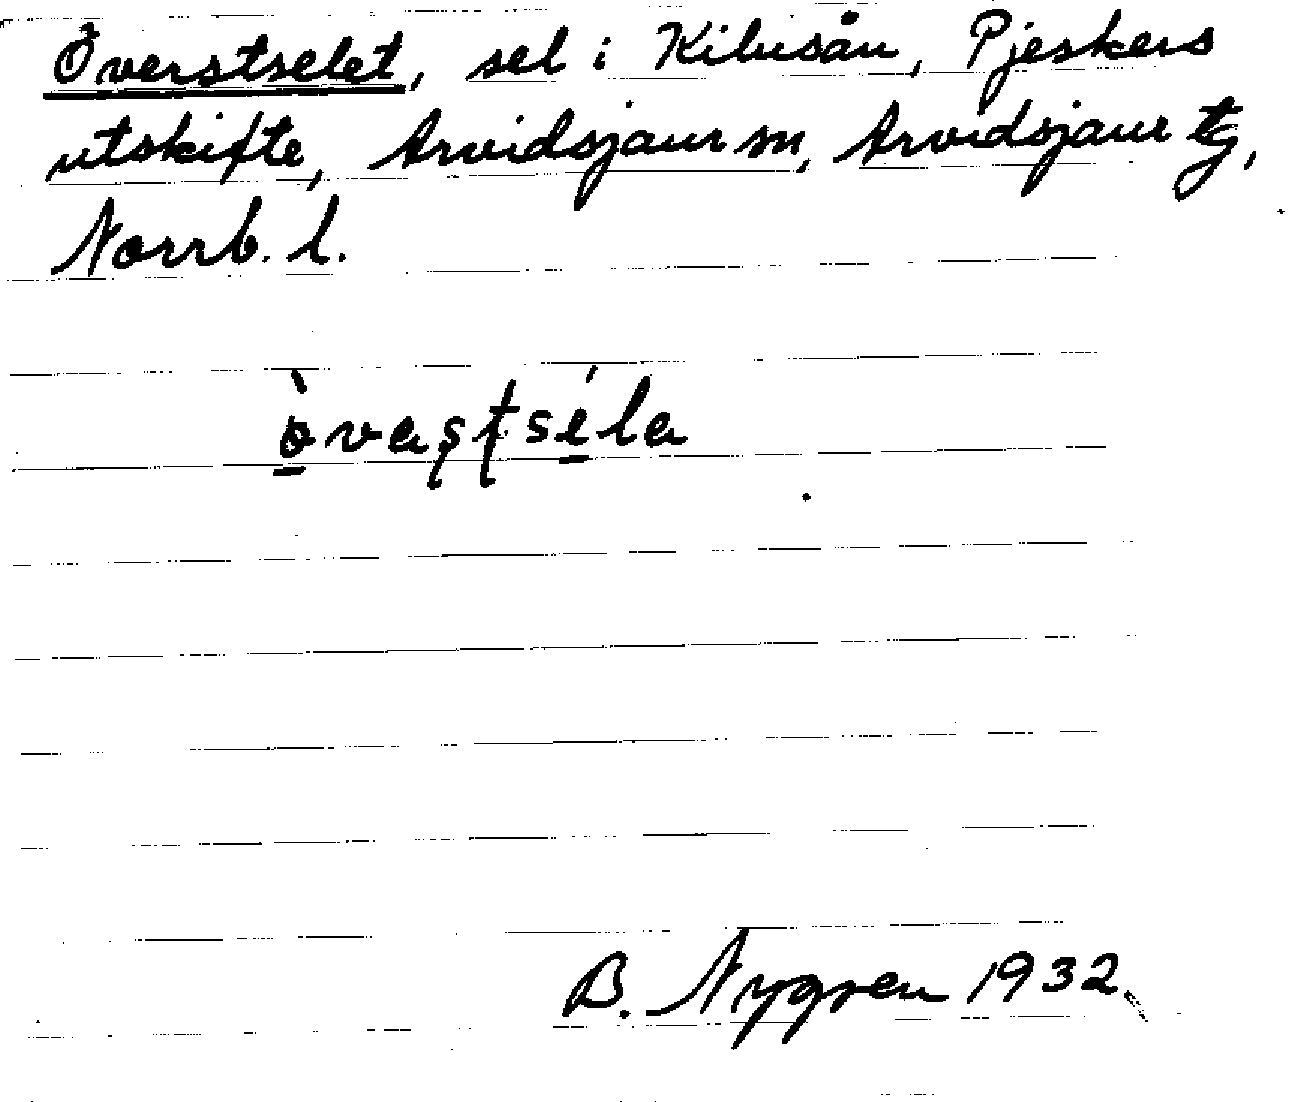 Överstselet, sel i Kilusån, Pjeskers
utskifte, Arvidsjaur sn, Arvidsjaur tg,
Norrb. l.
B. Nygren 1932